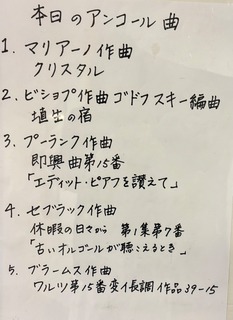 本日のアンコール曲
1. マリアーノ作曲
クリスタル
2. ビショプ作曲 ゴドフスキー編曲
埴生の宿
3. プーランク作曲
即興曲第15番
「エディット・ピアフを讃えて」
4. セブラック作曲
休暇の日々から 第1集第7番
「古いオルゴールが聴こえるとき」
5. ブラームス作曲
ワルツ第15番変イ長調 作品39-15